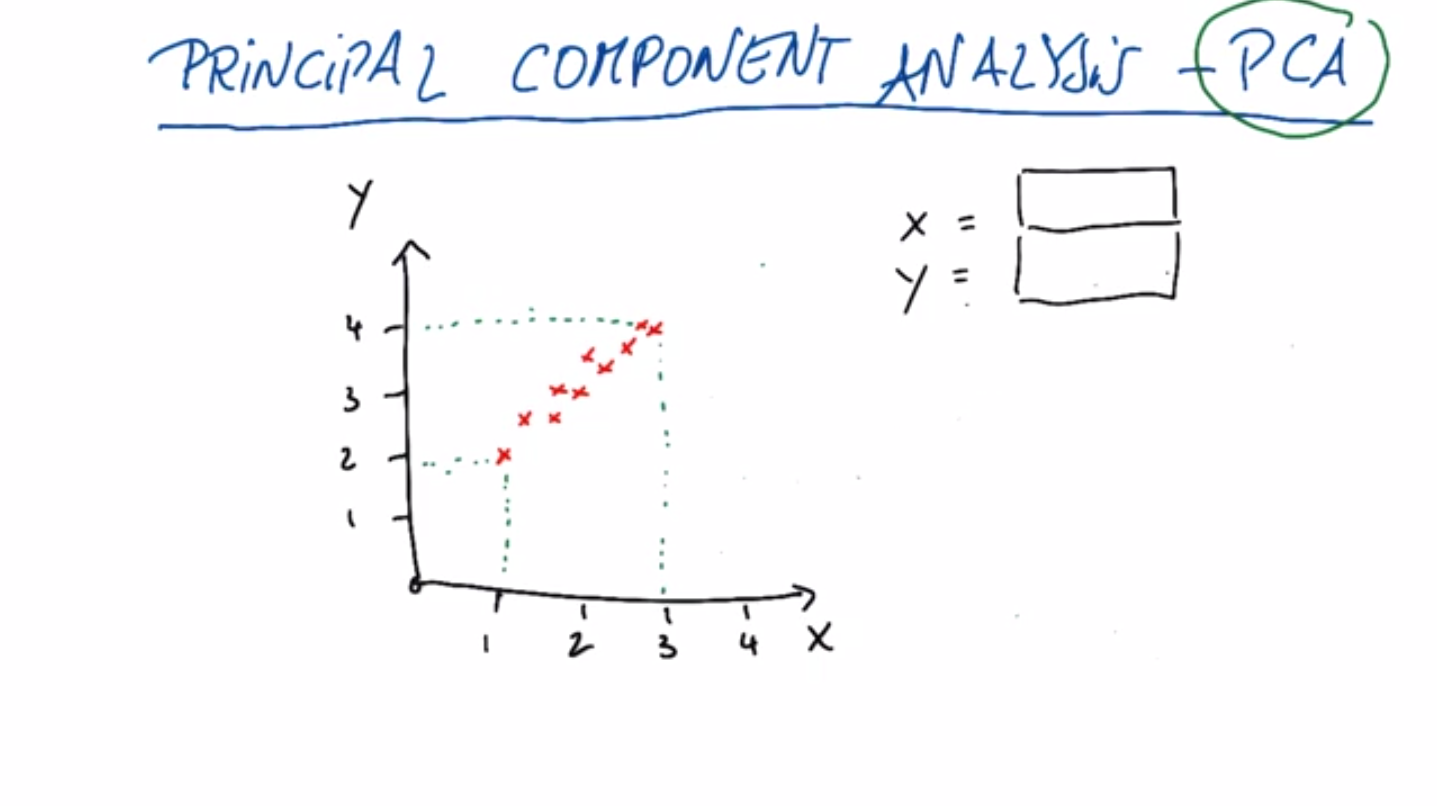 PRINCIPAL COMPONENT ANALYSIS - PCA
Y
X =
Y =
4
3
2
1
0
1 2 3 4 X